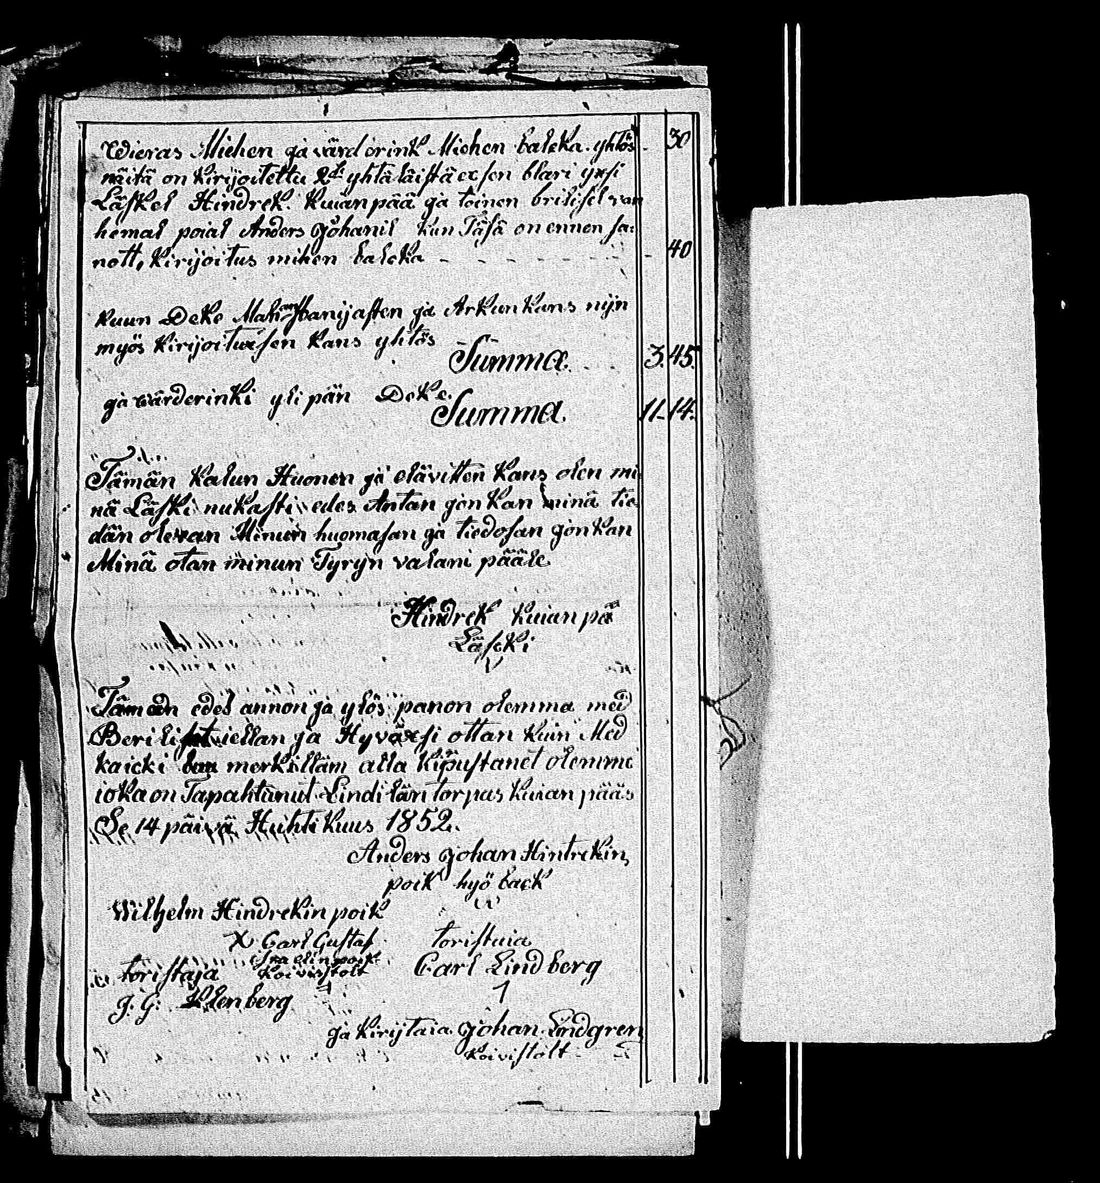 Wieras Miehen ja värdörink Miehen palcka yhtös 30
näitä on kirjoitettu 2di yhtäläistä exsen blari yxsi
Läskel Hindrek Kuianpää ja toinen
hemal poial Anders Johanil kun Täsä on ennen sa
nott, kirijoitus mihen palcka - - - - 40
kuun Deke Maksanstbanijasten ja Arkun kans nijn
myös kirijoituxsen kans yhtös
Summa 3.45.
ja wärderinki yli pän Deke
Summa. 11-14.
Tämän kalun Huonen ja elävitten kans olen mi
nä Läski nukasti edes Antan jonkan minä tie
dän olevan Minun huomasan ja tiedosan jonkan
Minä otan minun Tyryn valani pääle
Hindrek kuianpä
Läski
Tämän edes annon ja ylös panon olemma med
ja Hyväxsi ottan kuin Med
kaicki merkilläm alla kipustanet olemme
ioka on Tapahtunut Lindilän torpas kuian pääs
Se 14 päivä Huhti kuus 1852.
Anders Johan Hintrekin
poik hyö back
Wilhelm Hindrekin poik
X Carl Gustaf toristuia
Israelin poik
toristaja Koivistolt Carl Lindberg
J. G. Klenberg
ja kirijtaia Johan Lindgren
Koivistolt